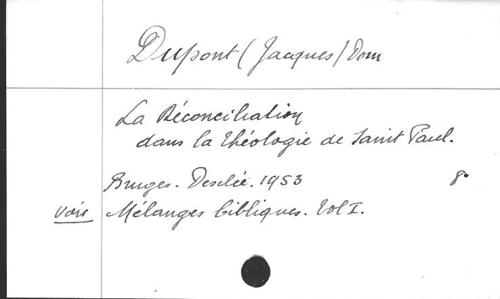 Dupont (Jacques) Dom
La Réconciliation
dans la théologie de Saint Paul.
Bruges. Desclée. 1953 8°
voir Mélanges bibliques. Vol I.